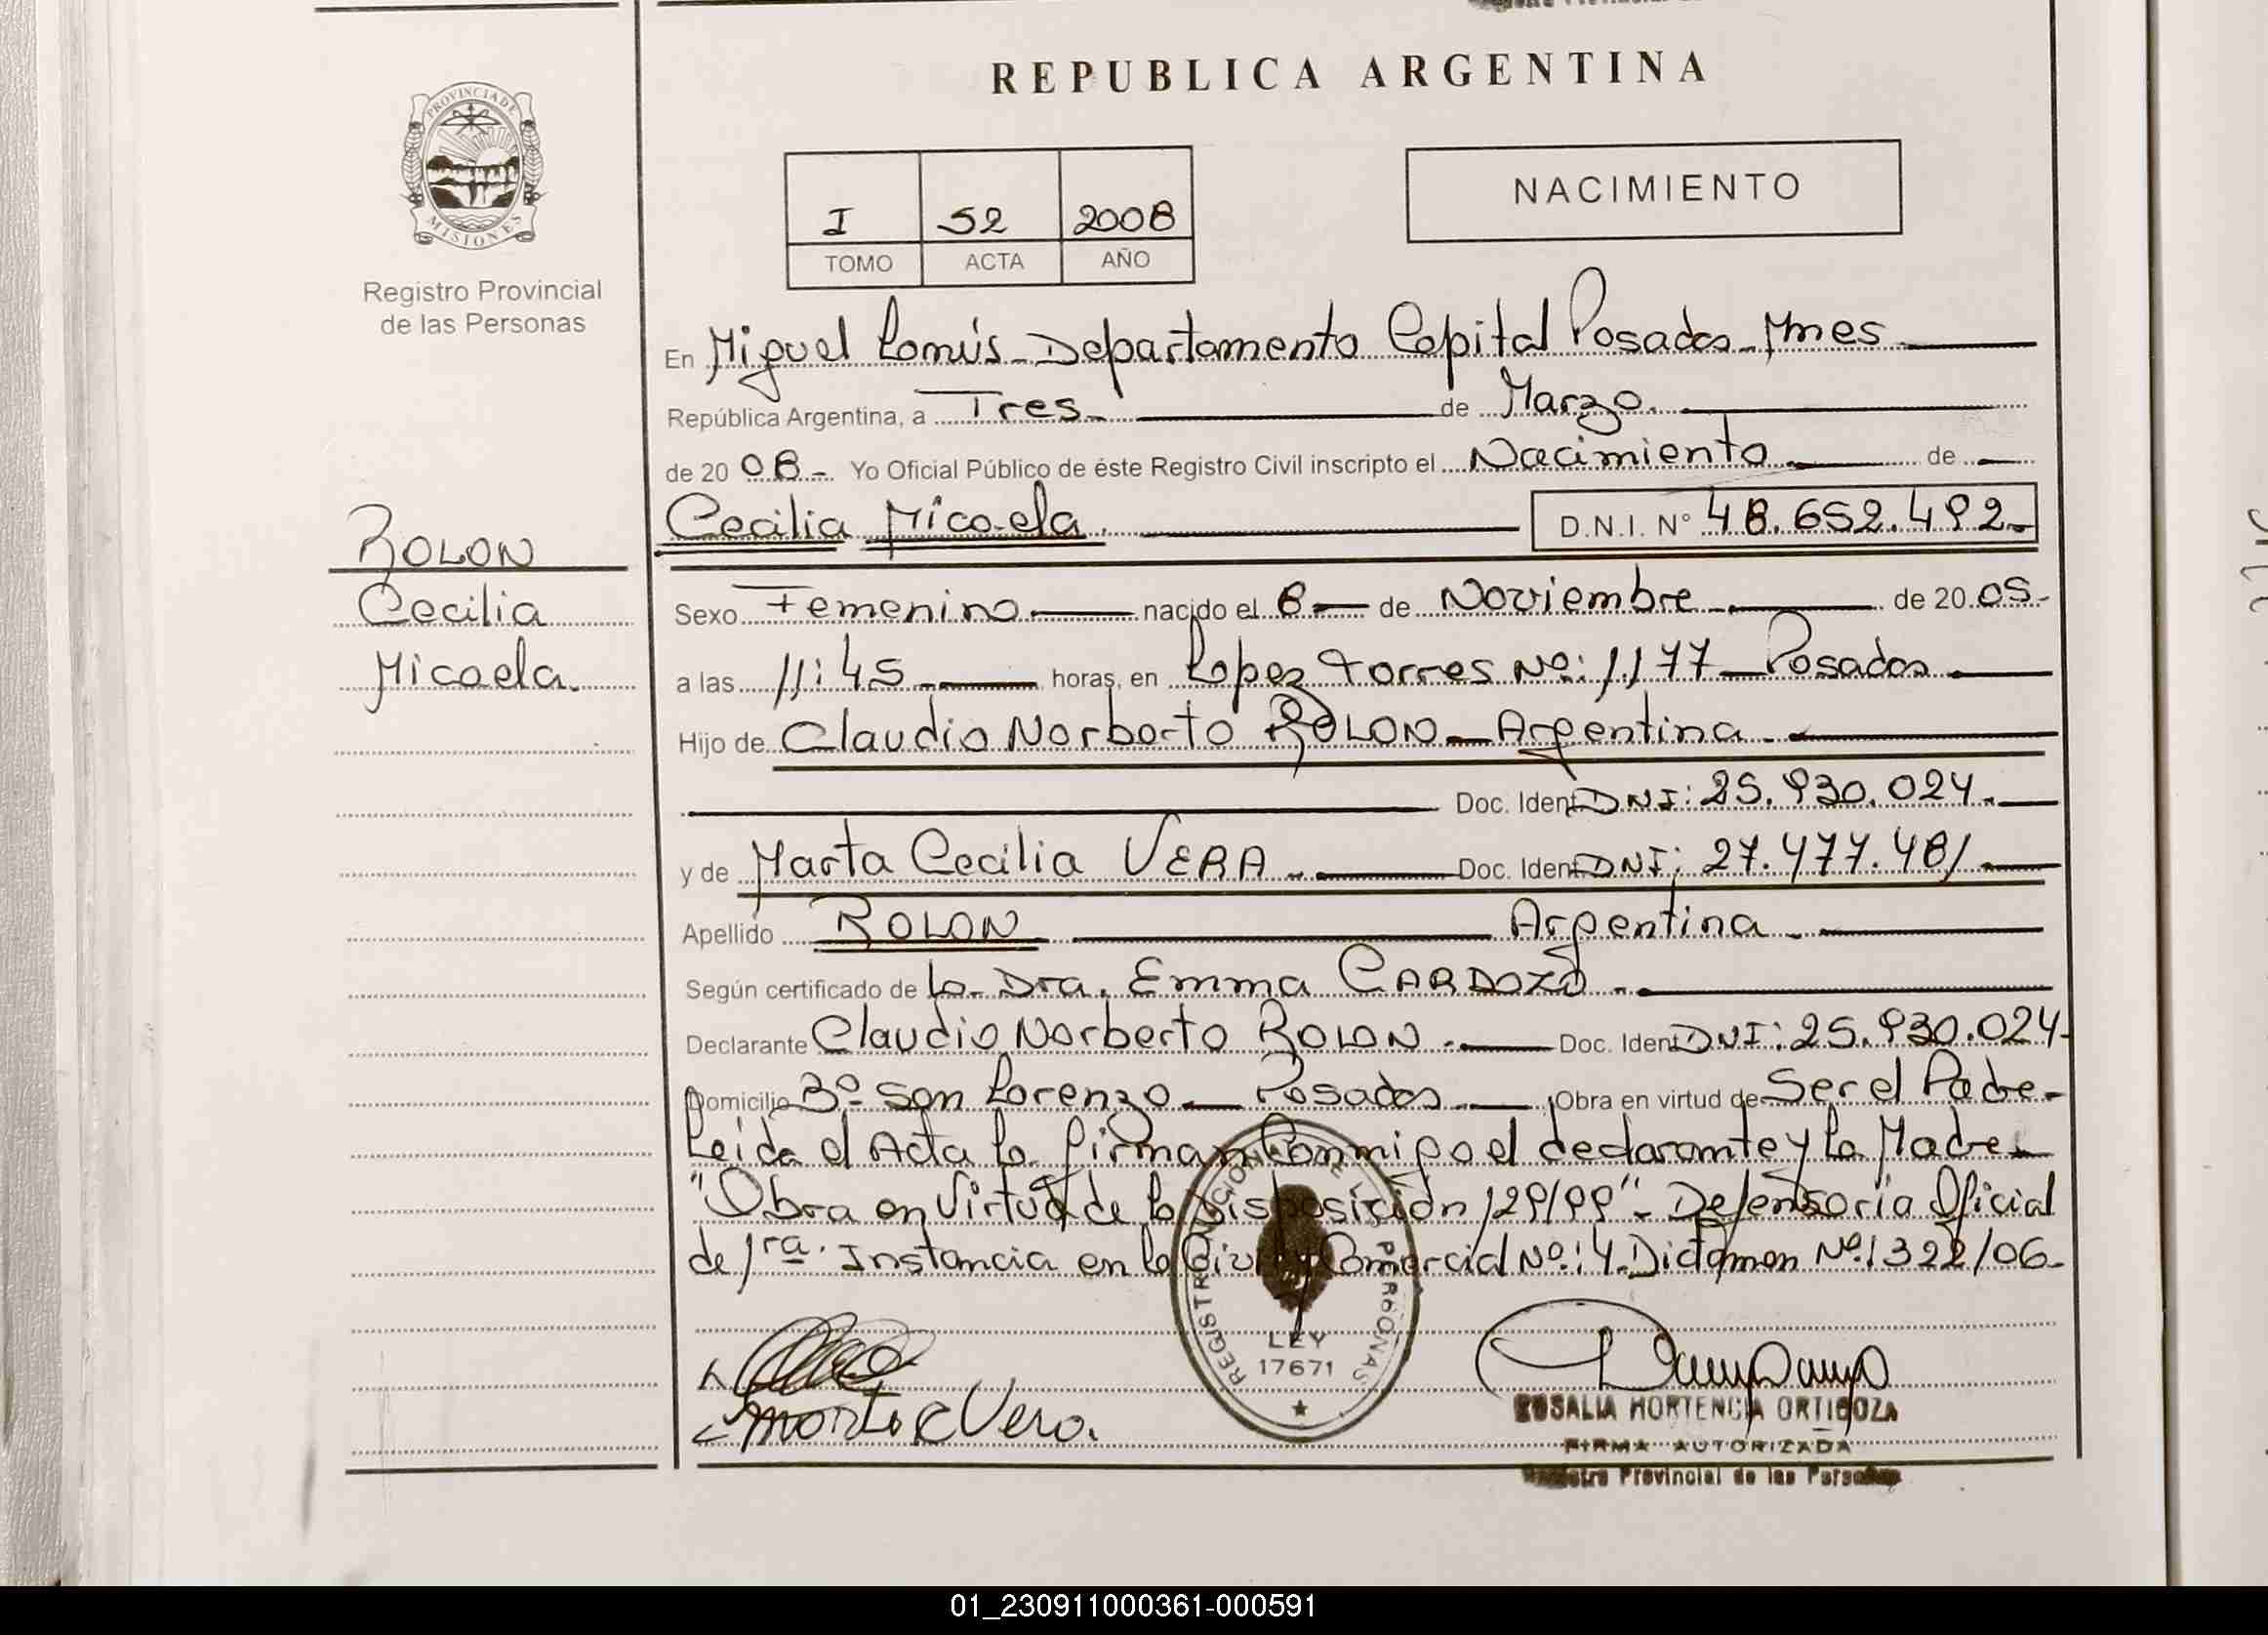 REPUBLICA ARGENTINA
PROVINCIA DE
MISIONES
Registro Provincial
de las Personas
I 52 2008
TOMO ACTA AÑO
NACIMIENTO
En Miguel Lanús - Departamento Capital Posadas - Mnes
República Argentina, a Tres. de Marzo.
de 20 08.- Yo Oficial Público de éste Registro Civil inscripto el Nacimiento de
Cecilia Micaela. D.N.I. N° 48.652.492.
ROLON
Cecilia
Micaela.
Sexo Femenino nacido el 8 de Noviembre de 20 05.
a las 11:45 horas, en Lopez Torres Nº: 1177 - Posadas
Hijo de Claudio Norberto ROLON - Argentina.
Doc. Ident DNI: 25.930.024.
y de Marta Cecilia VERA. Doc. Ident DNI: 27.477.481
Apellido ROLON Argentina.
Según certificado de la Dra. Emma CARDOZO.
Declarante Claudio Norberto ROLON. Doc. Ident DNI: 25.930.024
Domicilio Bº San Lorenzo - Posadas Obra en virtud de Ser el Padre-
Leida el Acta la firman Conmigo el declarante y la Madre
"Obra en Virtud de la Disposición 129/99". Defensoria Oficial
de 1ra. Instancia en lo Civil y Comercial Nº: 4. Dictamen Nº: 1322/06.
REGISTRO NACIONAL DE LAS PERSONAS
LEY
17671
Marta C Vera.
ROSALIA HORTENCIA ORTIGOZA
FIRMA AUTORIZADA
Registro Provincial de las Personas
01_230911000361-000591